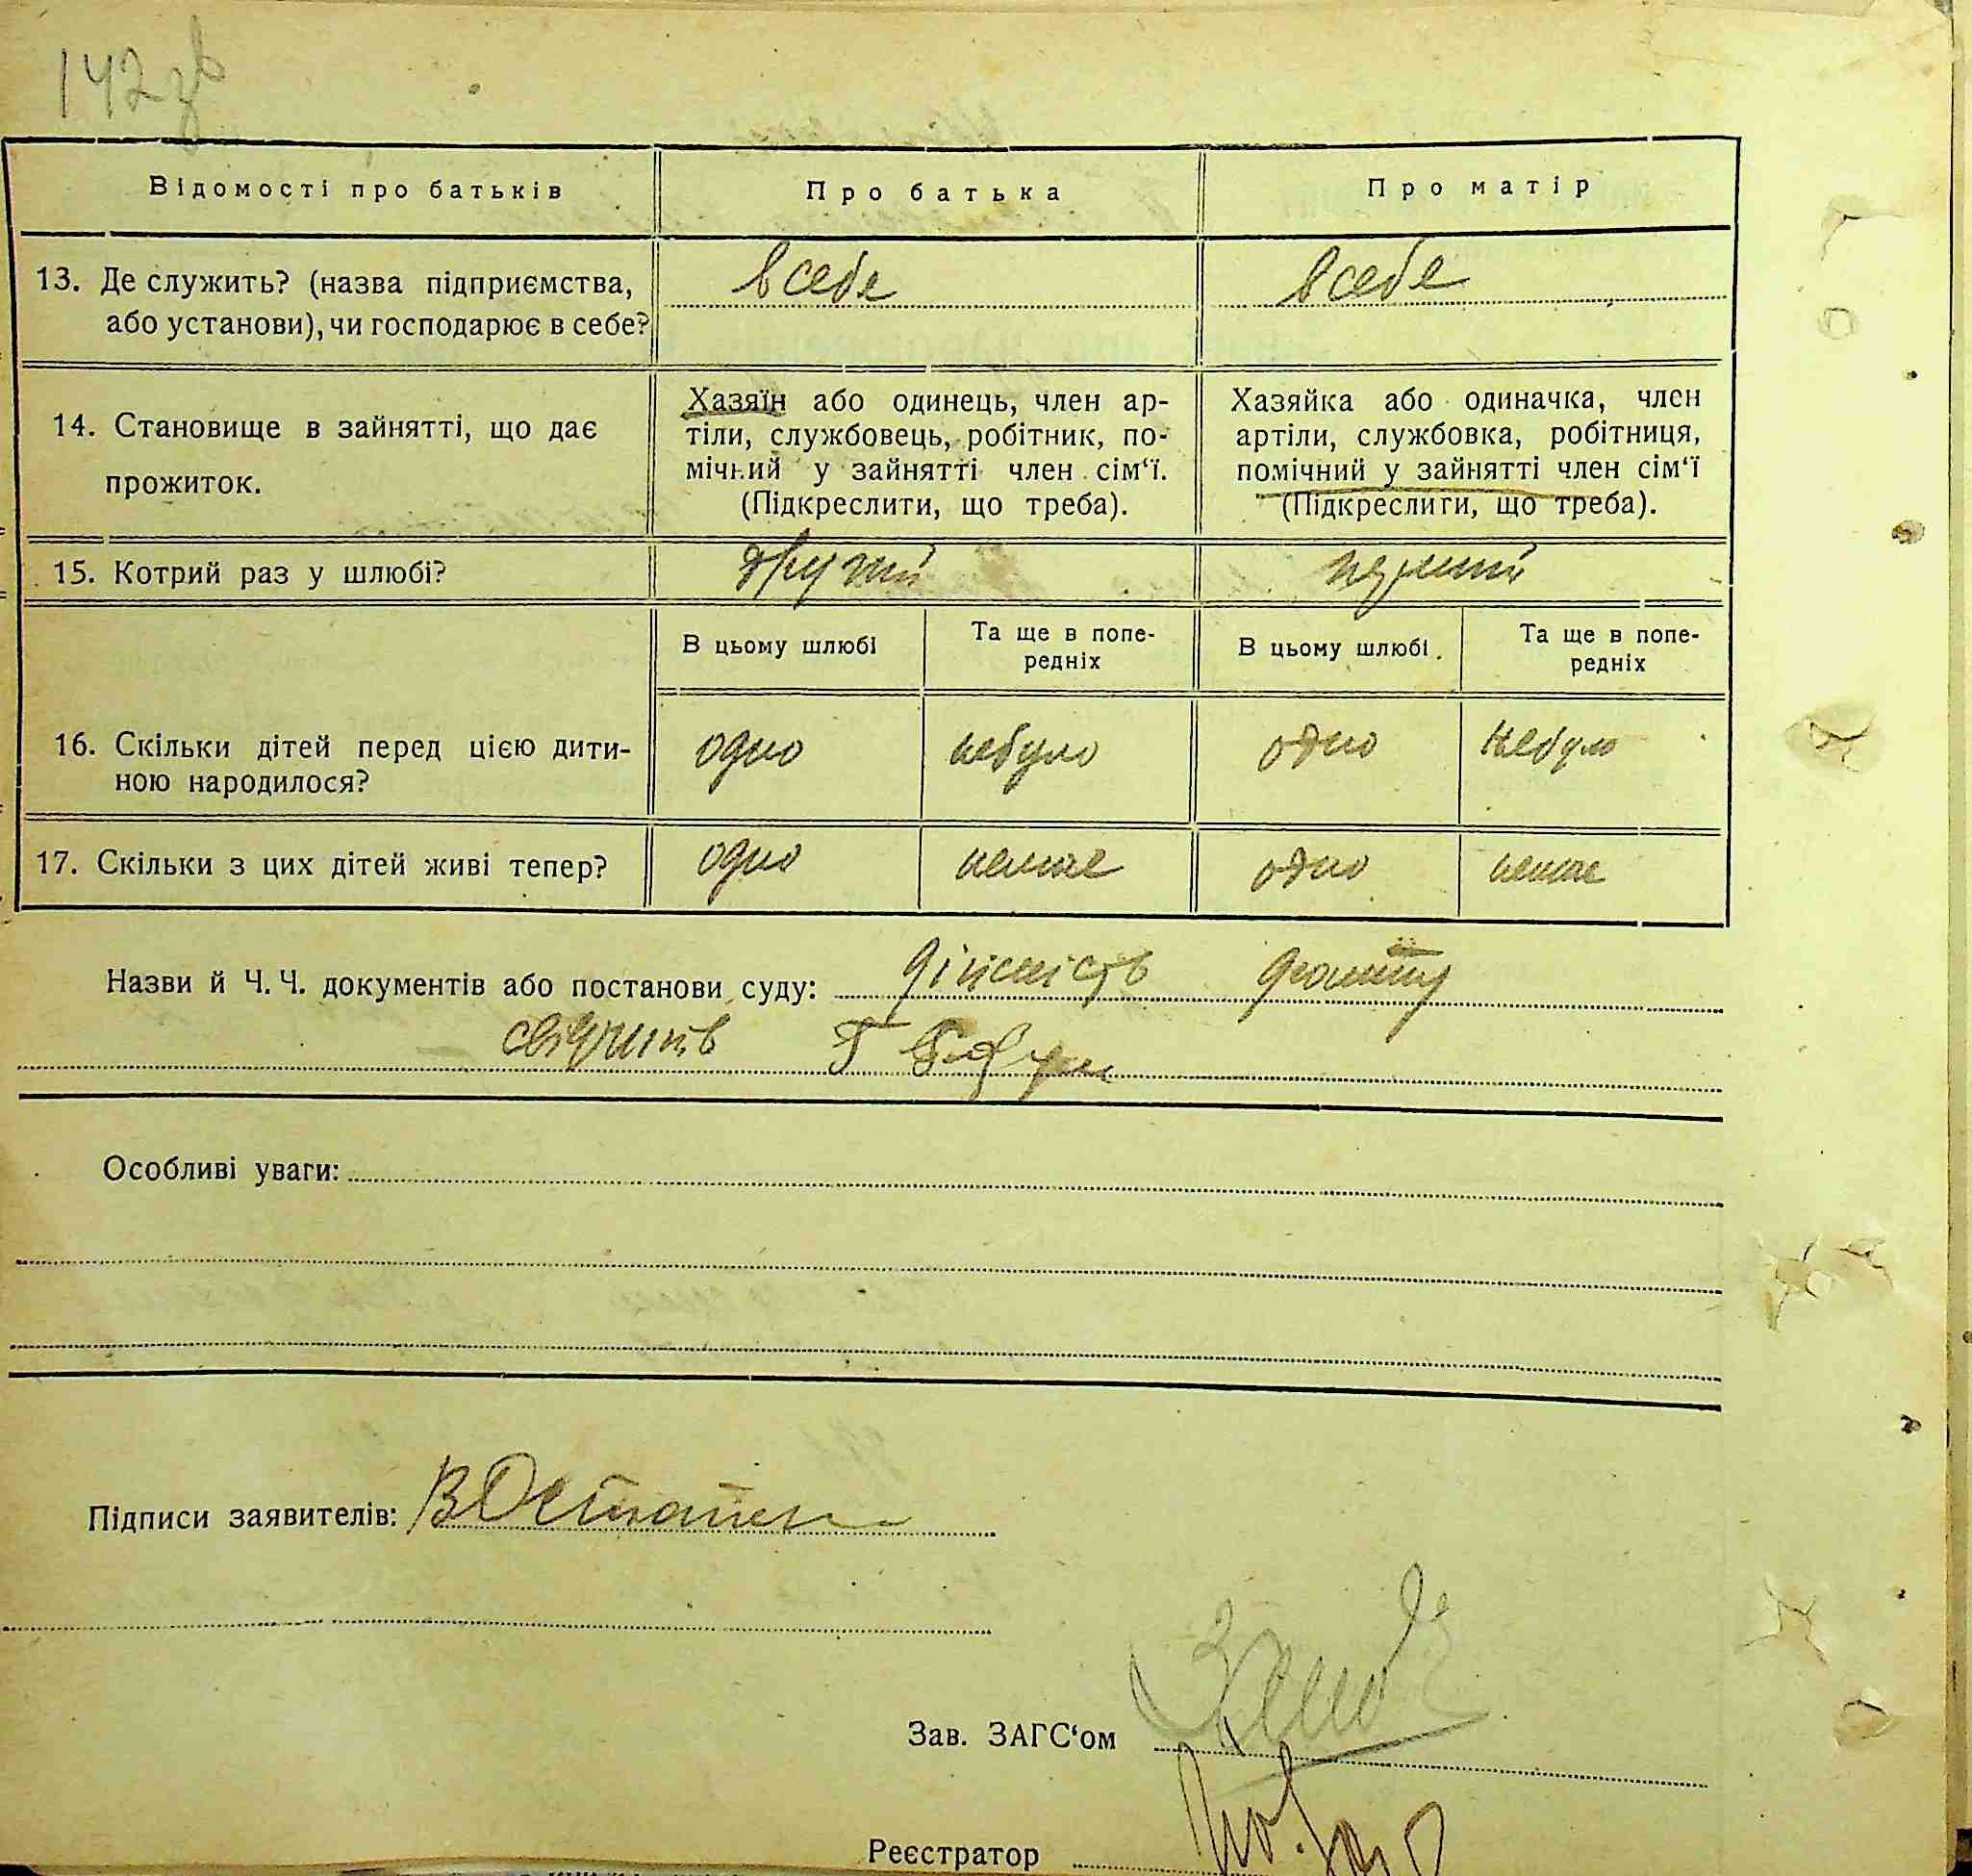 142 зв
Відомості про батьків
Про батька
Про матір
13. Де служить? (назва підприємства,
або установи), чи господарює в себе?
в себе
в себе
14. Становище в зайнятті, що дає
прожиток.
Хазяїн або одинець, член ар-
тіли, службовець, робітник, по-
мічний у зайнятті член сім‘ї.
(Підкреслити, що треба).
Хазяйка або одиначка, член
артіли, службовка, робітниця,
помічний у зайнятті член сім‘ї
(Підкреслити, що треба).
15. Котрий раз у шлюбі?
другий
перший
В цьому шлюбі
Та ще в попе-
редніх
В цьому шлюбі
Та ще в попе-
редніх
16. Скільки дітей перед цією дити-
ною народилося?
одно
небуло
одно
небуло
17. Скільки з цих дітей живі тепер?
одно
немає
одно
немає
Назви й Ч. Ч. документів або постанови суду: дійсність
свідчить
Особливі уваги:
Підписи заявителів:
Зав. ЗАГС‘ом
Реєстратор